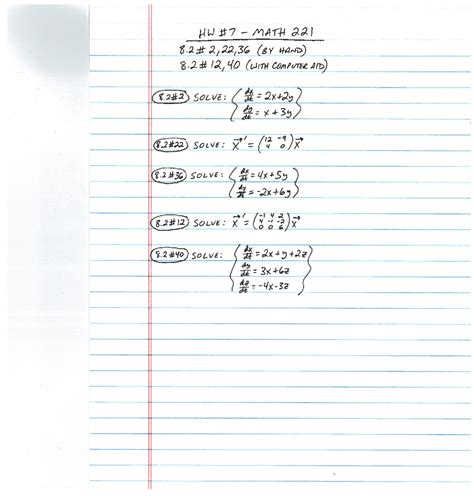 HW #7 - MATH 221
8.2 # 2, 22, 36 (BY HAND)
8.2 # 12, 40 (WITH COMPUTER AID)
8.2#2 SOLVE: { dx/dt = 2x+2y
dy/dt = x + 3y }
8.2#22 SOLVE: X⃗' = (12 -9
4 0) X⃗
8.2#36 SOLVE: { dx/dt = 4x+5y
dy/dt = -2x+6y }
8.2#12 SOLVE: X⃗' = (-1 4 2
4 -1 -2
0 0 6) X⃗
8.2#40 SOLVE: { dx/dt = 2x+y+2z
dy/dt = 3x+6z
dz/dt = -4x-3z }